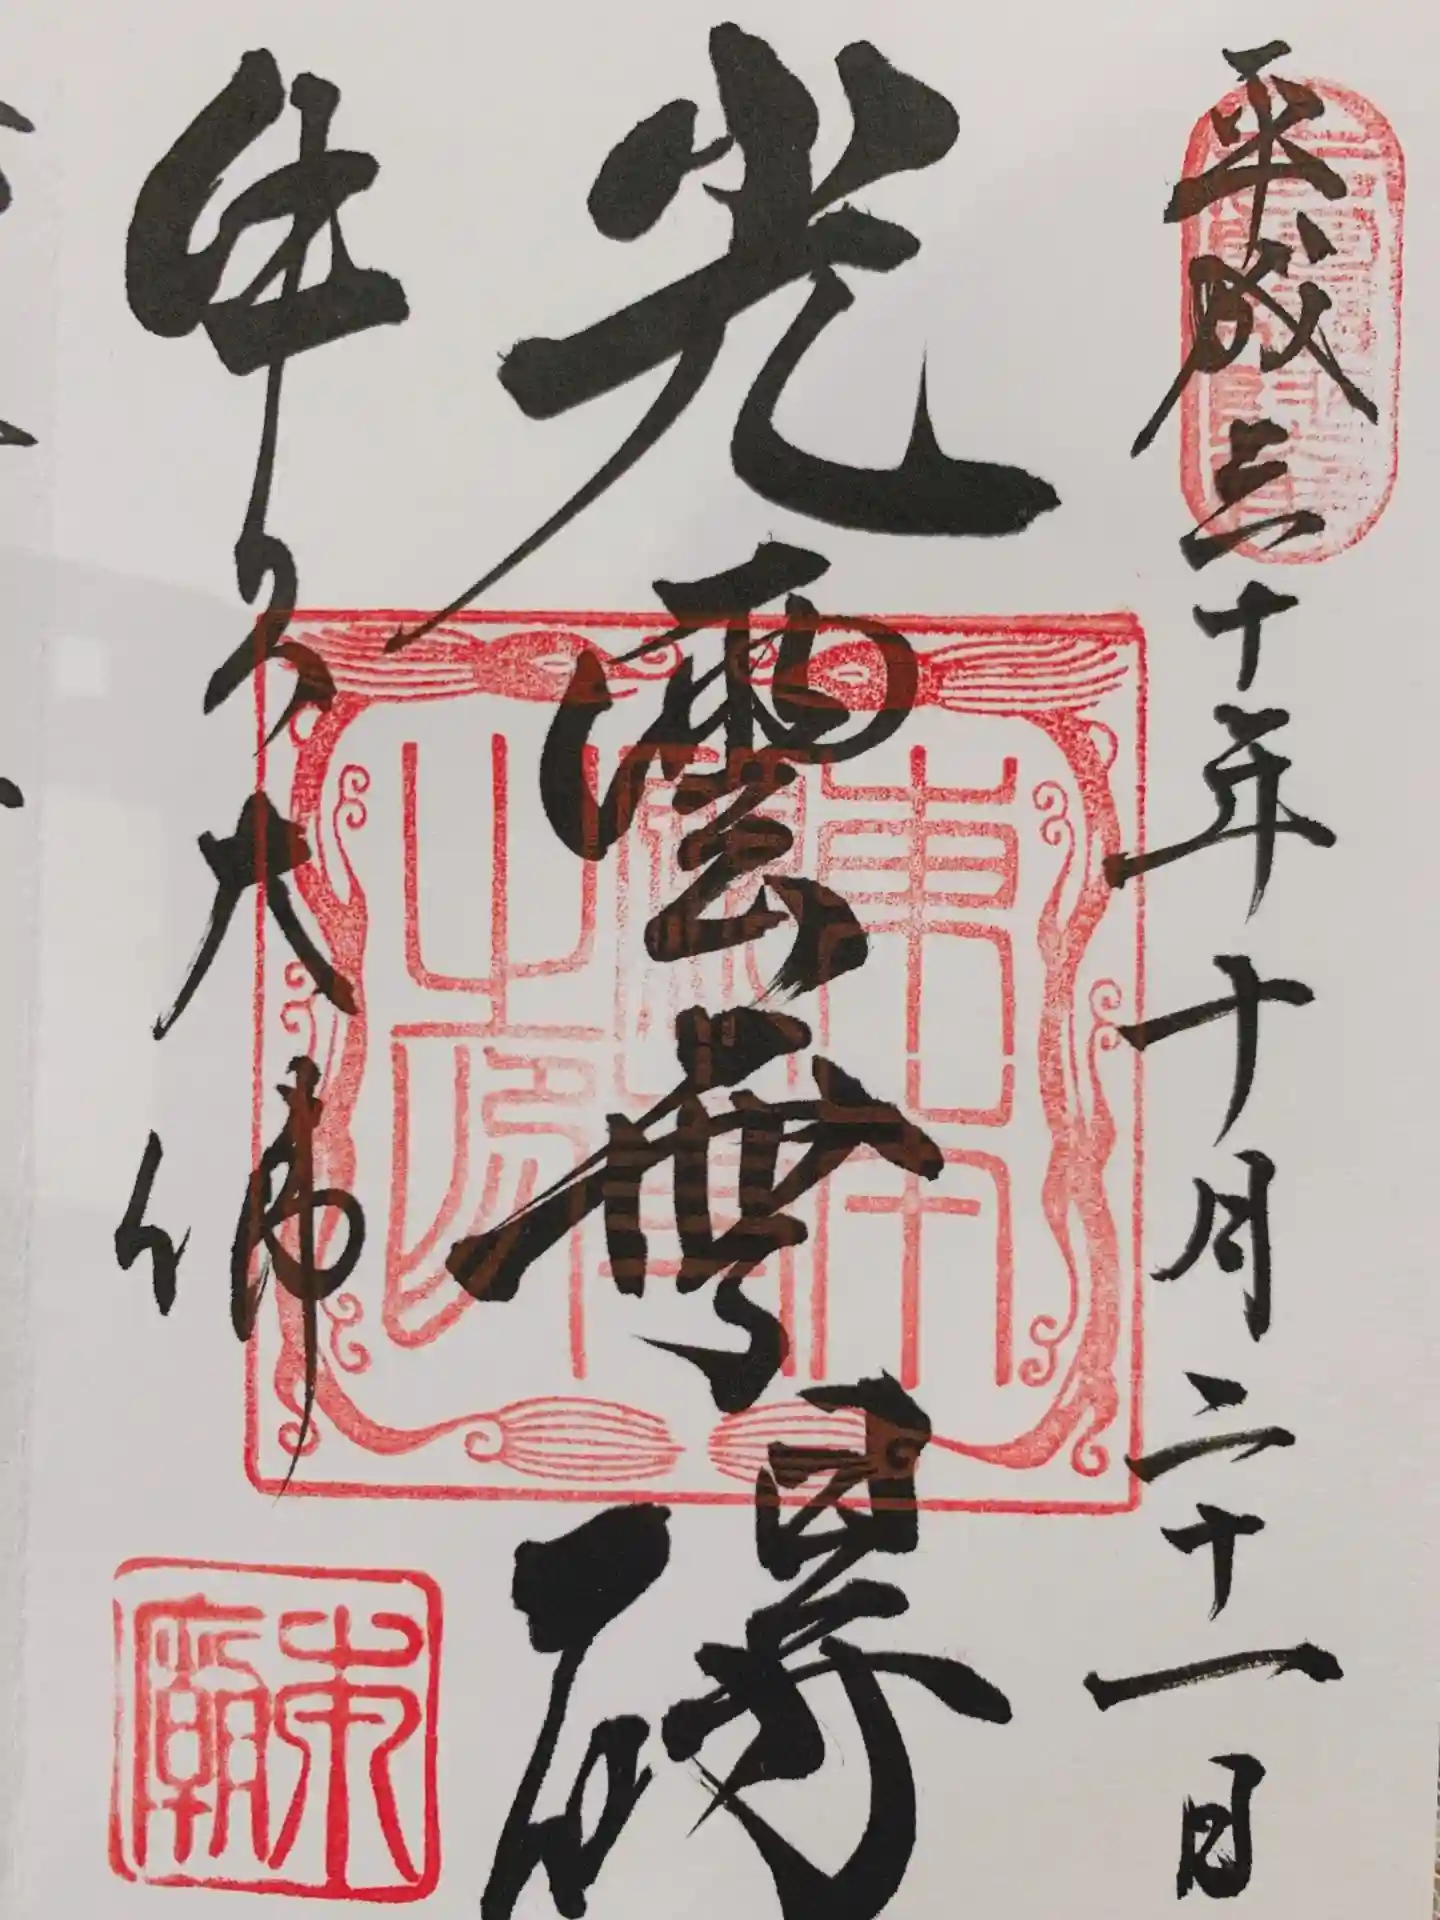 平成三十年十月二十一日
光雲無碍
牛久大佛
東本願寺之印